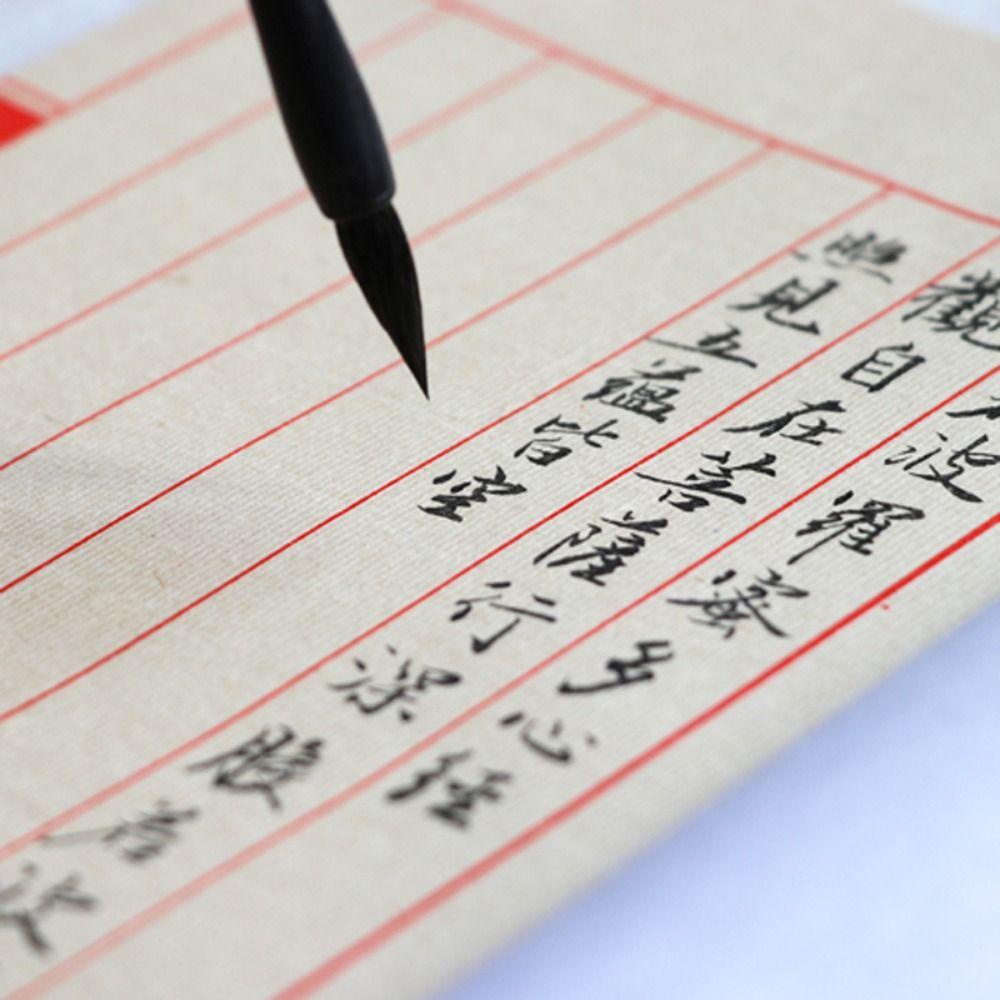 若波羅蜜多心經
觀自在菩薩行深般若波
照見五蘊皆空